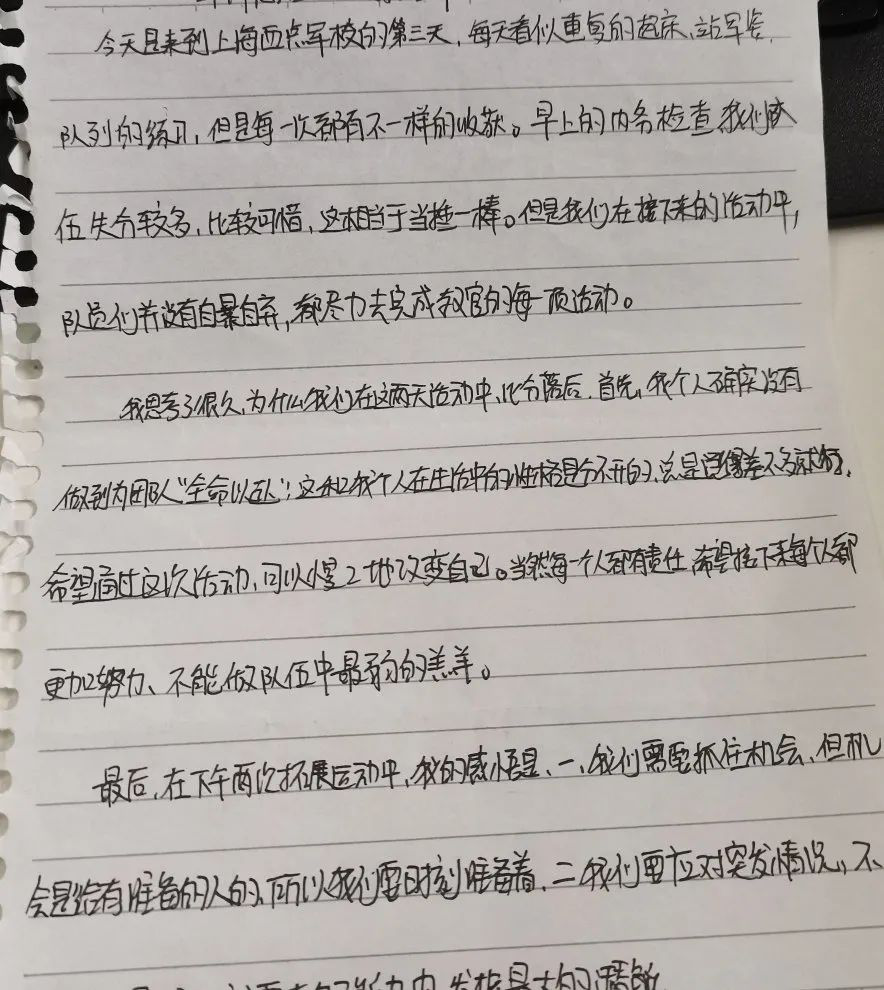 今天是来到上海西点军校的第三天，每天看似重复的起床、站军姿、
队列的练习，但是每一次都有不一样的收获。早上的内务检查我们队
伍失分较多，比较可惜，这相当于当捶一棒。但是我们在接下来的活动中，
队员们并没有自暴自弃，都尽力去完成教官的每一项活动。
我思考了很久，为什么我们在这两天活动中，比分落后，首先，我个人确实没有
做到为团队“全命以赴”；这和我个人在生活中的性格是分不开的，总是觉得差不多就好，
希望通过这次活动，可以慢2地改变自己。当然每一个人都有责任，希望接下来每个人都
更加努力、不能做队伍中最弱的羔羊。
最后，在下午两次拓展运动中，我的感悟是、一、我们需要抓住机会、但机
会是给有准备的人的、所以我们要时刻准备着，二我们要应对突发情况，不
发挥最大的潜能